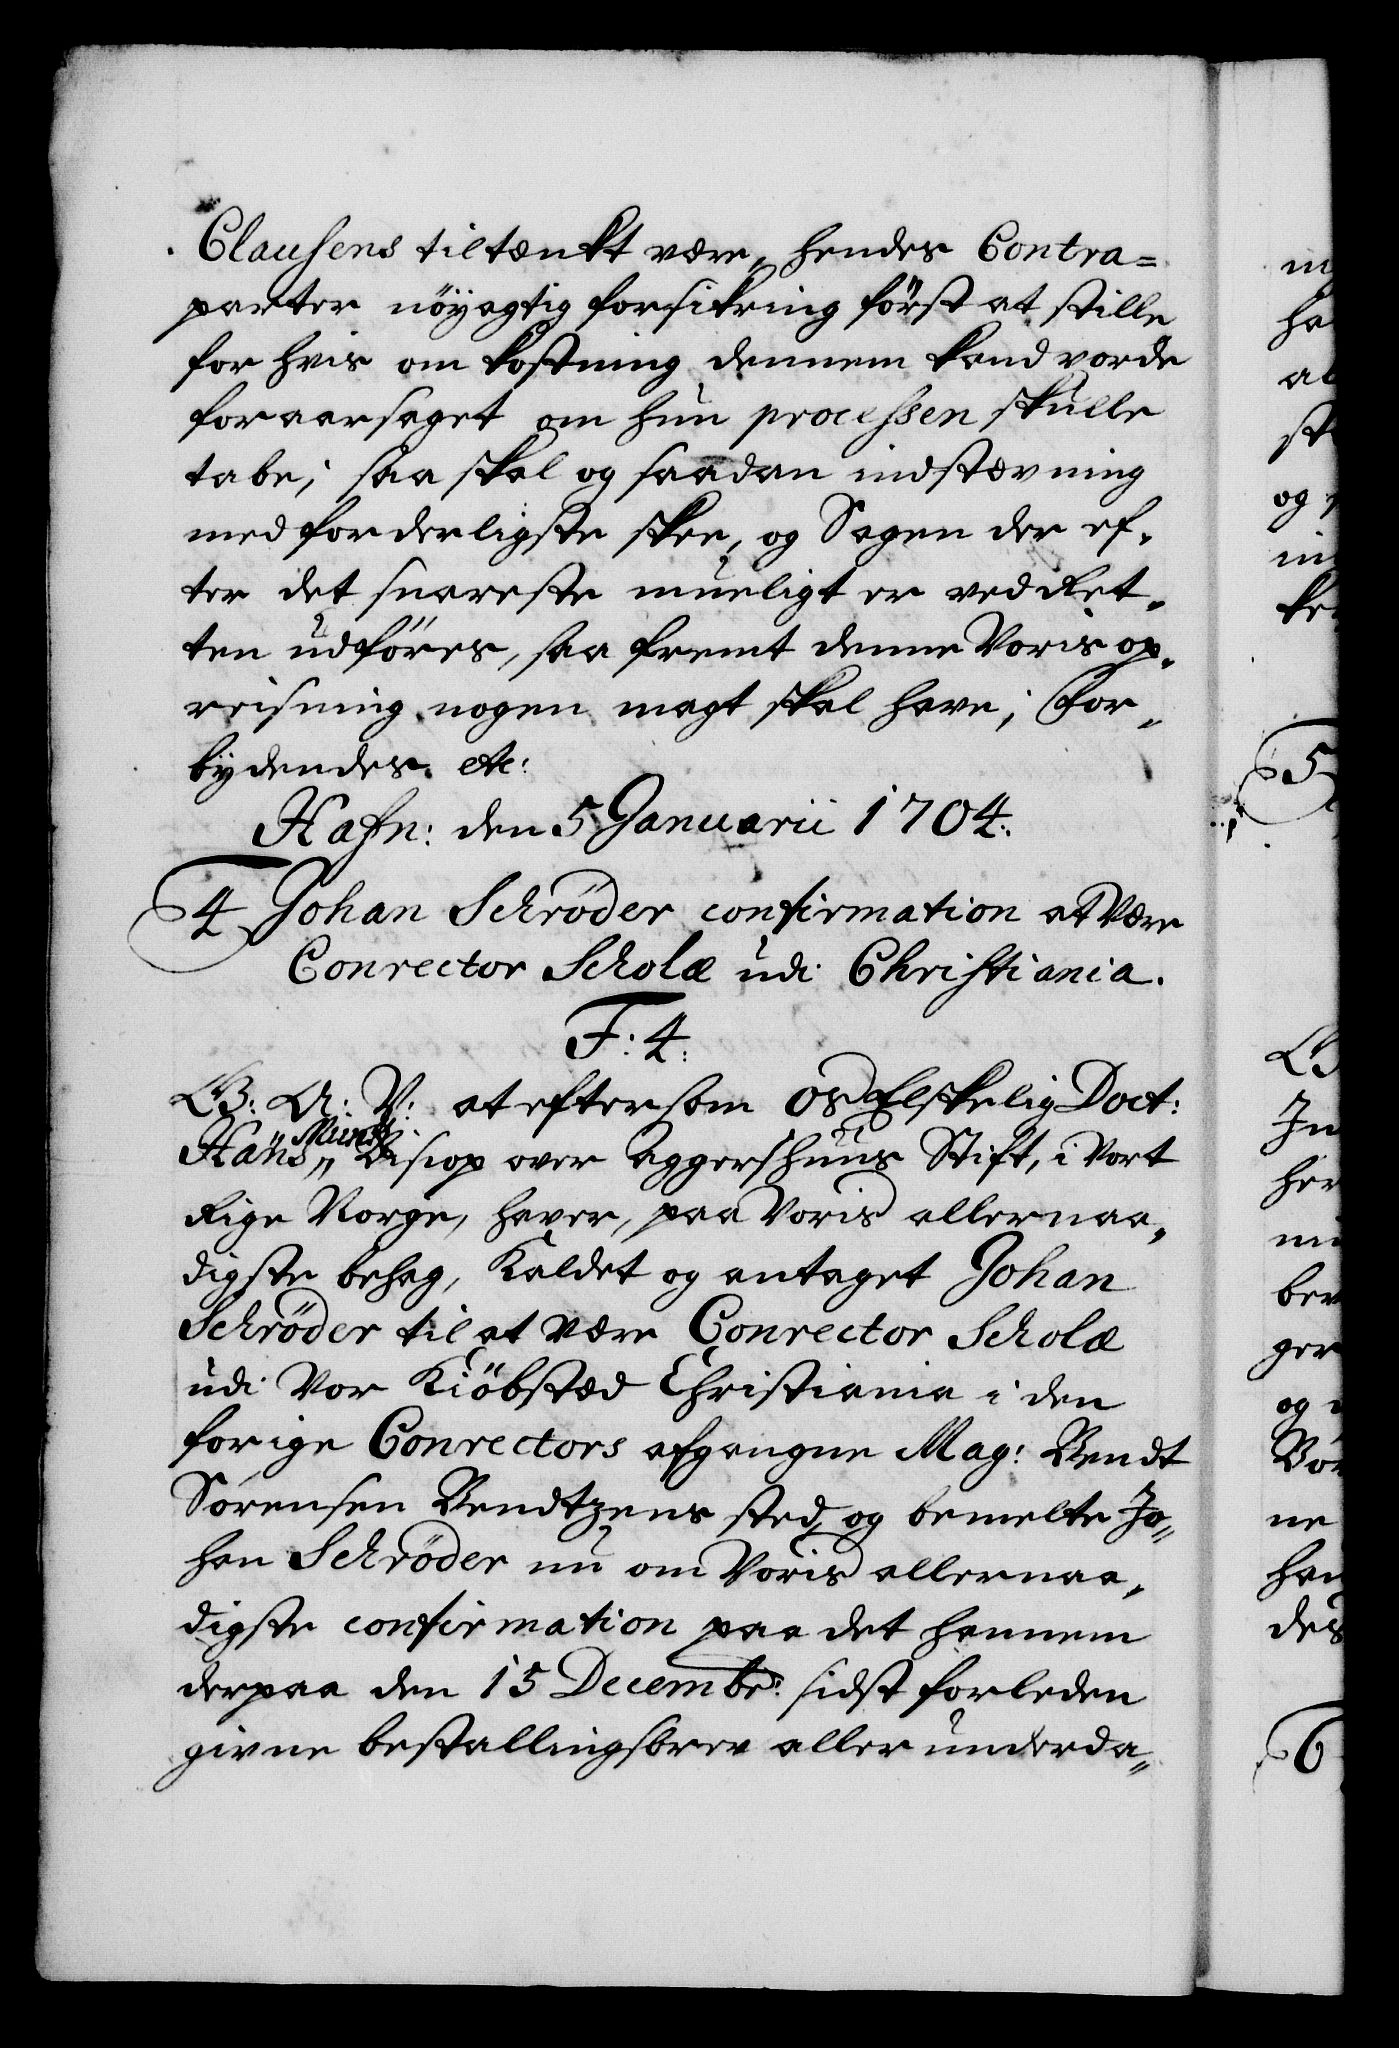 Clausens tiltænkt være, hendes Contra=
parter nöyagtig forsikring först at stille
for hvis om kostning dennem kand vorde
foraarsaget om hun processen skulle
tabe; saa skal og saadan indstævning
med forderligste skee, og Sagen der ef„
ter det snareste mueligt er ved Ret„
ten udföres, saa fremt denne Voris op„
reisning nogen magt skal have; For„
bydendes etc:
Hafn: den 5 Januarii 1704.
4 Johan Schrøder confirmation at Være
Conrector Scholæ udi Christiania.
F: 4.
G: A: V: at eftersom OS Elskelig Doct:
Hans Munch Bisiop over Aggershuus Stift, i Vort
Rige Norge, haver, paa Voris allernaa„
digste behag, Kaldet og antaget Johan
Schrøder til at være Conrector Scholæ
udi Vor Kiöbstæd Christiania i den
forige Conrectors afgangne Mag: Bendt
Sørensen Bendtzens sted, og bemelte Jo„
han Schrøder nu om Voris allernaa„
digste confirmation paa det hannem
derpaa den 15 Decembr: sidst forleden
givne bestallingsbrev allerunderda„
5
6